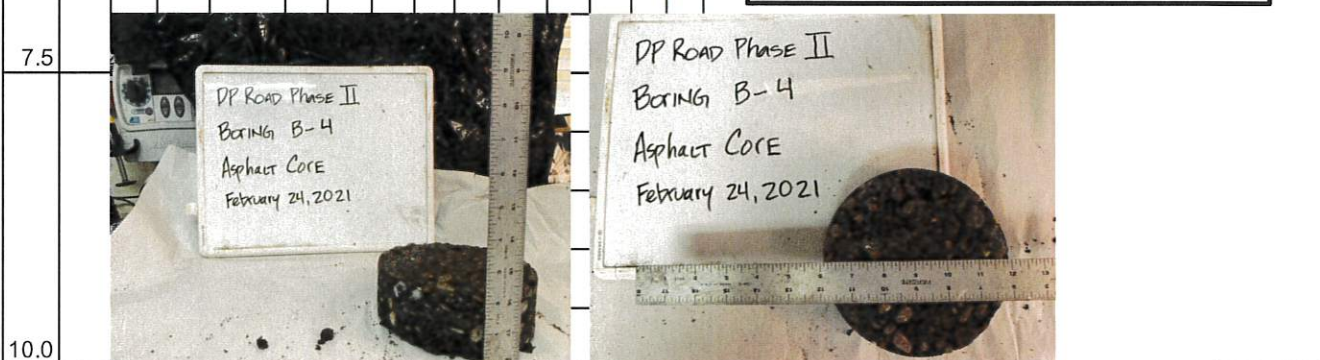 7.5
DP ROAD PHASE II
BORING B-4
ASPHALT CORE
February 24, 2021
DP ROAD PHASE II
BORING B-4
ASPHALT CORE
February 24, 2021
10.0